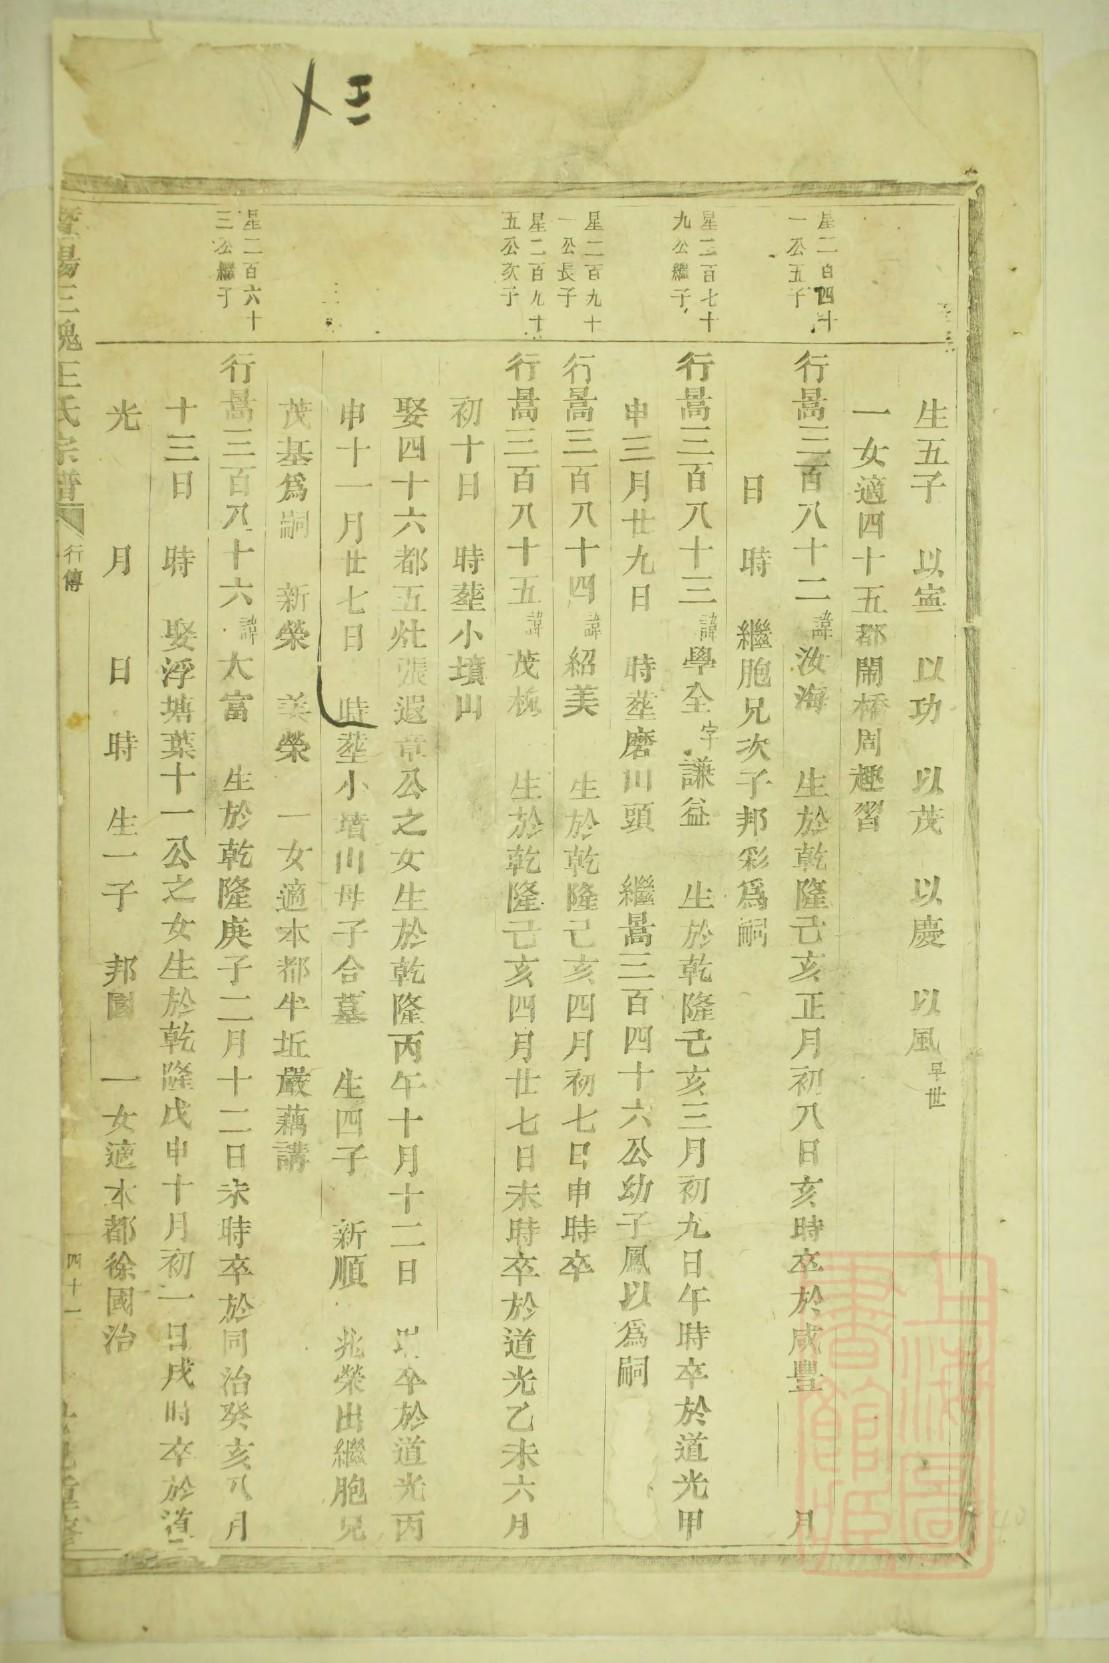 生五子 以寧 以功 以茂 以慶 以風早世
一女適四十五都鬧橋周趣習
星二百四十一公五子
行暠三百八十二諱汝海 生於乾隆己亥正月初八日亥時卒於咸豐 月
日 時 繼胞兄次子邦彩爲嗣
星二百七十九公繼子
行暠三百八十三諱學全字謙益 生於乾隆己亥三月初九日午時卒於道光甲
申三月廿九日 時塟磨川頭 繼暠三百四十六公幼子鳳以爲嗣
星二百九十一公長子
行暠三百八十四諱紹美 生於乾隆己亥四月初七日申時卒
星二百九十五公次子
行暠三百八十五諱茂 生於乾隆己亥四月廿七日未時卒於道光乙未六月
初十日 時塟小墳山
娶四十六都五灶張遐章公之女生於乾隆丙午十月十二日 時卒於道光丙
申十一月廿七日 時塟小墳山母子合墓 生四子 新順 兆榮出繼胞兄
茂基爲嗣 新榮 美榮 一女適本都牛坵嚴藕講
星二百六十三公繼子
行暠三百八十六諱大富 生於乾隆庚子二月十二日未時卒於同治癸亥八月
十三日 時 娶浮塘葉十一公之女生於乾隆戊申十月初一日戌時卒於道
光 月 日 時 生一子 邦國 一女適本都徐國治
暨陽三槐王氏宗譜 行傳 四十一
上海圖書館藏